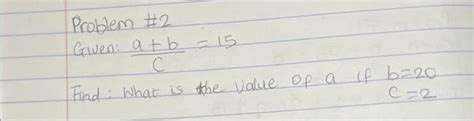 Problem #2
Given: a + b / c = 15
Find: What is the value of a if b=20
c=2